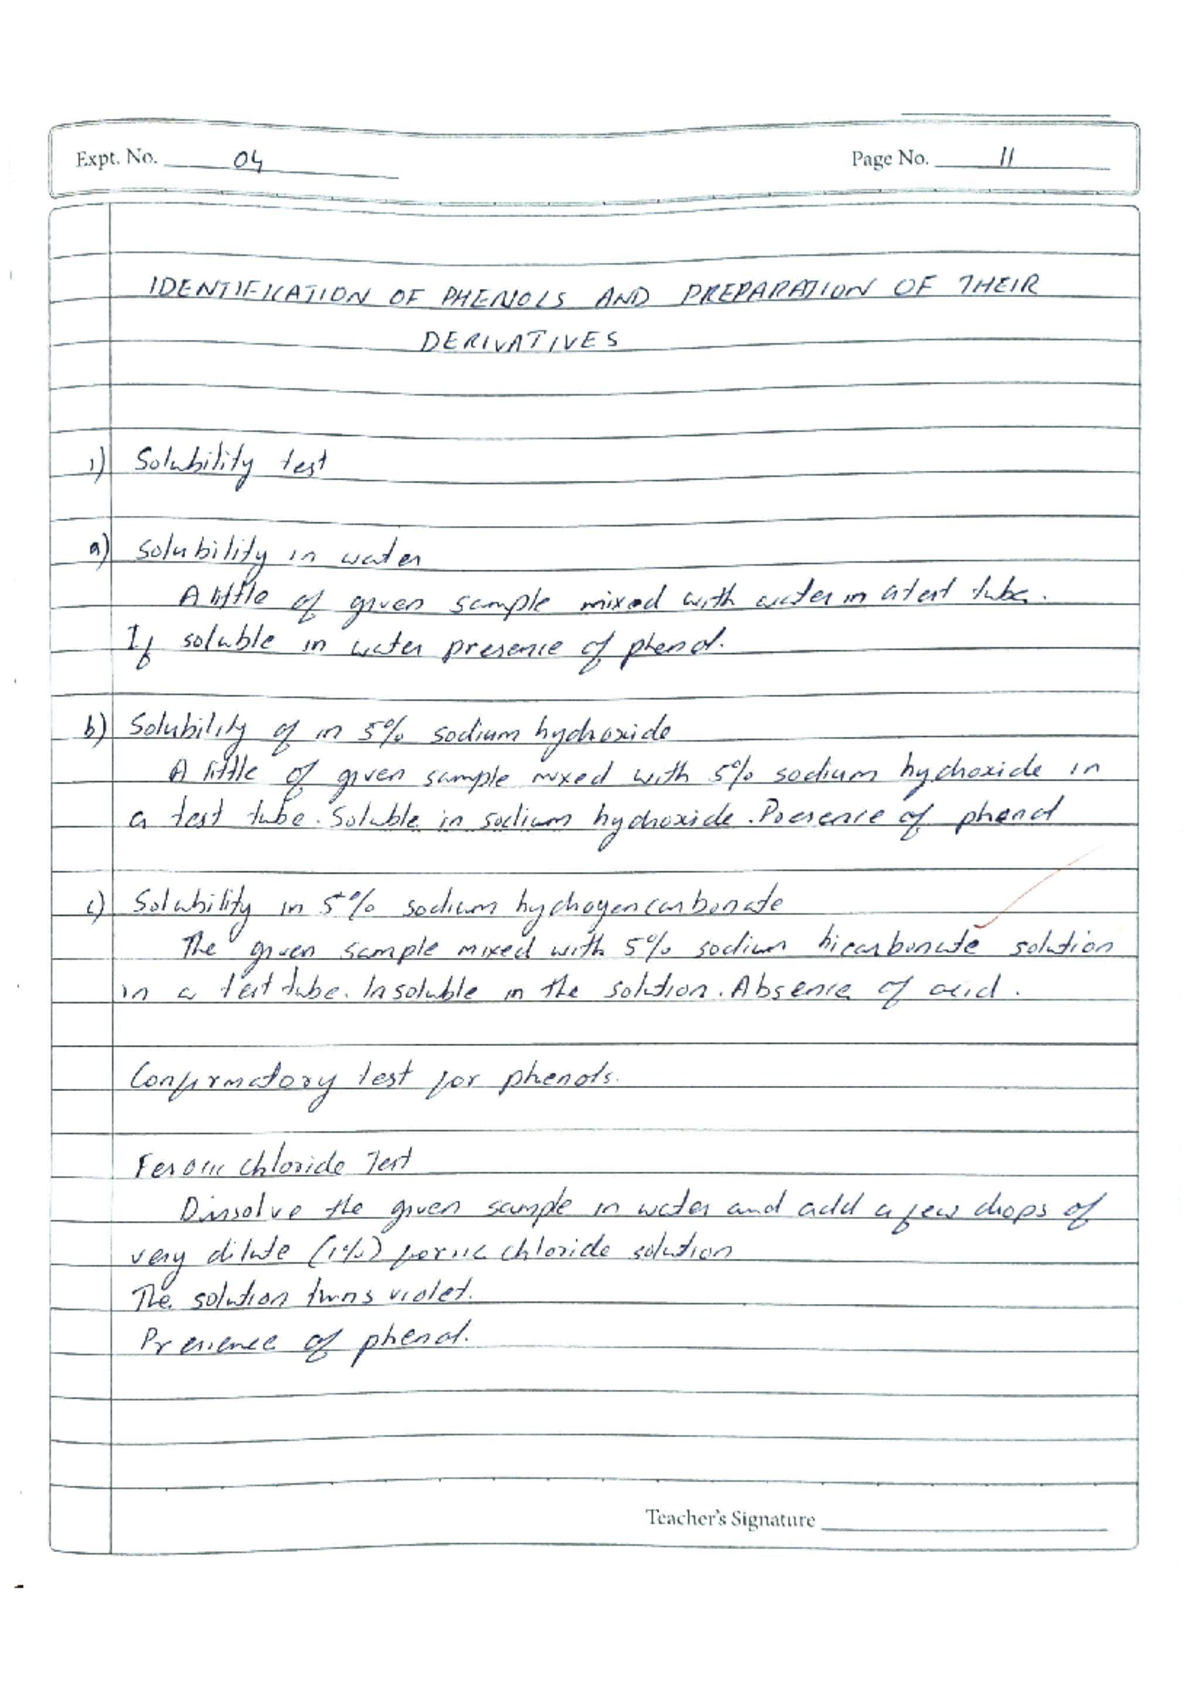 Expt. No. 04 Page No. 11
IDENTIFICATION OF PHENOLS AND PREPARATION OF THEIR
DERIVATIVES
1) Solubility test
a) Solubility in water
A little of given sample mixed with water in a test tube.
If soluble in water presence of phenol.
b) Solubility of in 5% sodium hydroxide
A little of given sample mixed with 5% sodium hydroxide in
a test tube. Soluble in sodium hydroxide. Presence of phenol
c) Solubility in 5% sodium hydrogen carbonate
The given sample mixed with 5% sodium bicarbonate solution
in a test tube. Insoluble in the solution. Absence of acid.
Confirmatory test for phenols.
Ferric chloride Test
Dissolve the given sample in water and add a few drops of
very dilute (1%) ferric chloride solution
The solution turns violet.
Presence of phenol.
Teacher's Signature